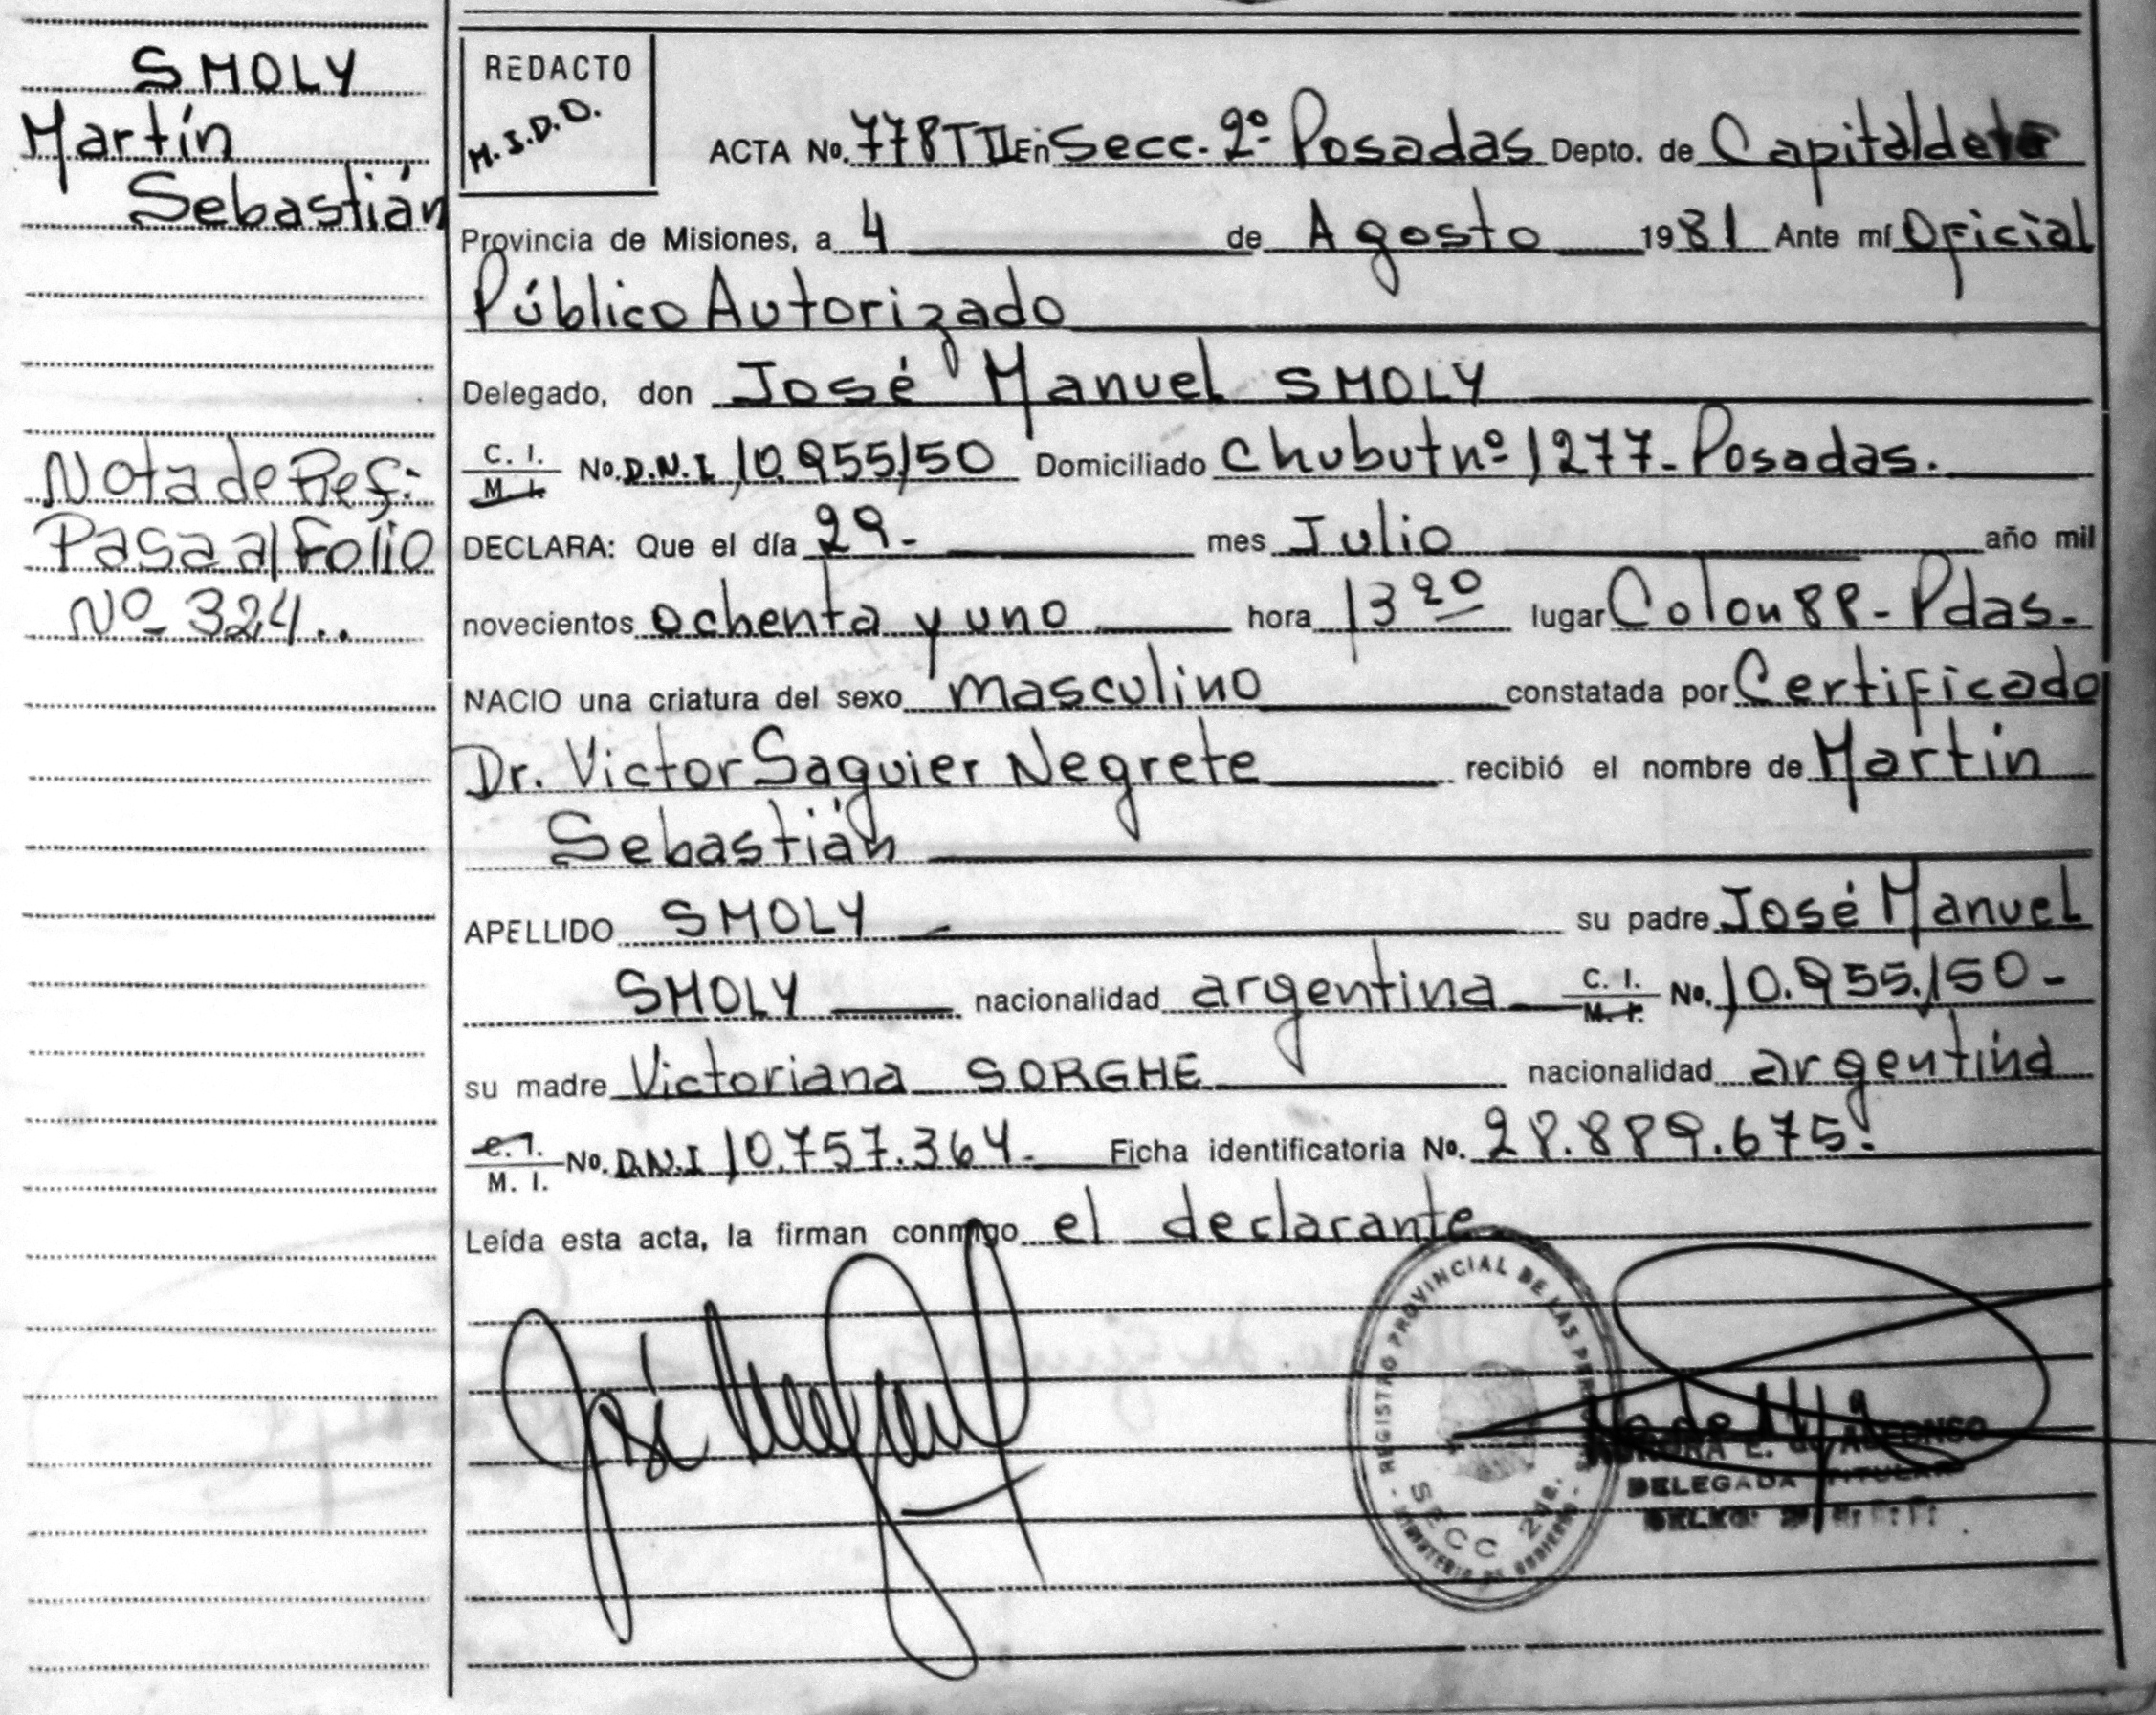 SMOLY
Martín
Sebastián
Nota de Ref:
Pasa al Folio
Nº 324..
REDACTO
M.S.D.O.
ACTA No. 778 T II En Secc. 2º Posadas Depto. de Capital de la
Provincia de Misiones, a 4 de Agosto 1981 Ante mí Oficial
Público Autorizado
Delegado, don José Manuel SMOLY
C. I. M. I. No. D.N.I 10.955.150 Domiciliado Chubut nº 1277- Posadas.
DECLARA: Que el día 29- mes Julio año mil
novecientos ochenta y uno hora 13 20 lugar Colon 88- Pdas.
NACIO una criatura del sexo masculino constatada por Certificado
Dr. Victor Saguier Negrete recibió el nombre de Martín
Sebastián
APELLIDO SMOLY su padre José Manuel
SMOLY nacionalidad argentina C. I. M. I. No. 10.955.150-
su madre Victoriana SORGHE nacionalidad argentina
C. I. M. I. No. D.N.I 10.757.364. Ficha identificatoria No. 28.889.675.
Leída esta acta, la firman conmigo el declarante
REGISTRO PROVINCIAL DE LAS PERSONAS
SECC 2da.
MINISTERIO DE GOBIERNO
E. de ALFONSO
DELEGADA TITULAR